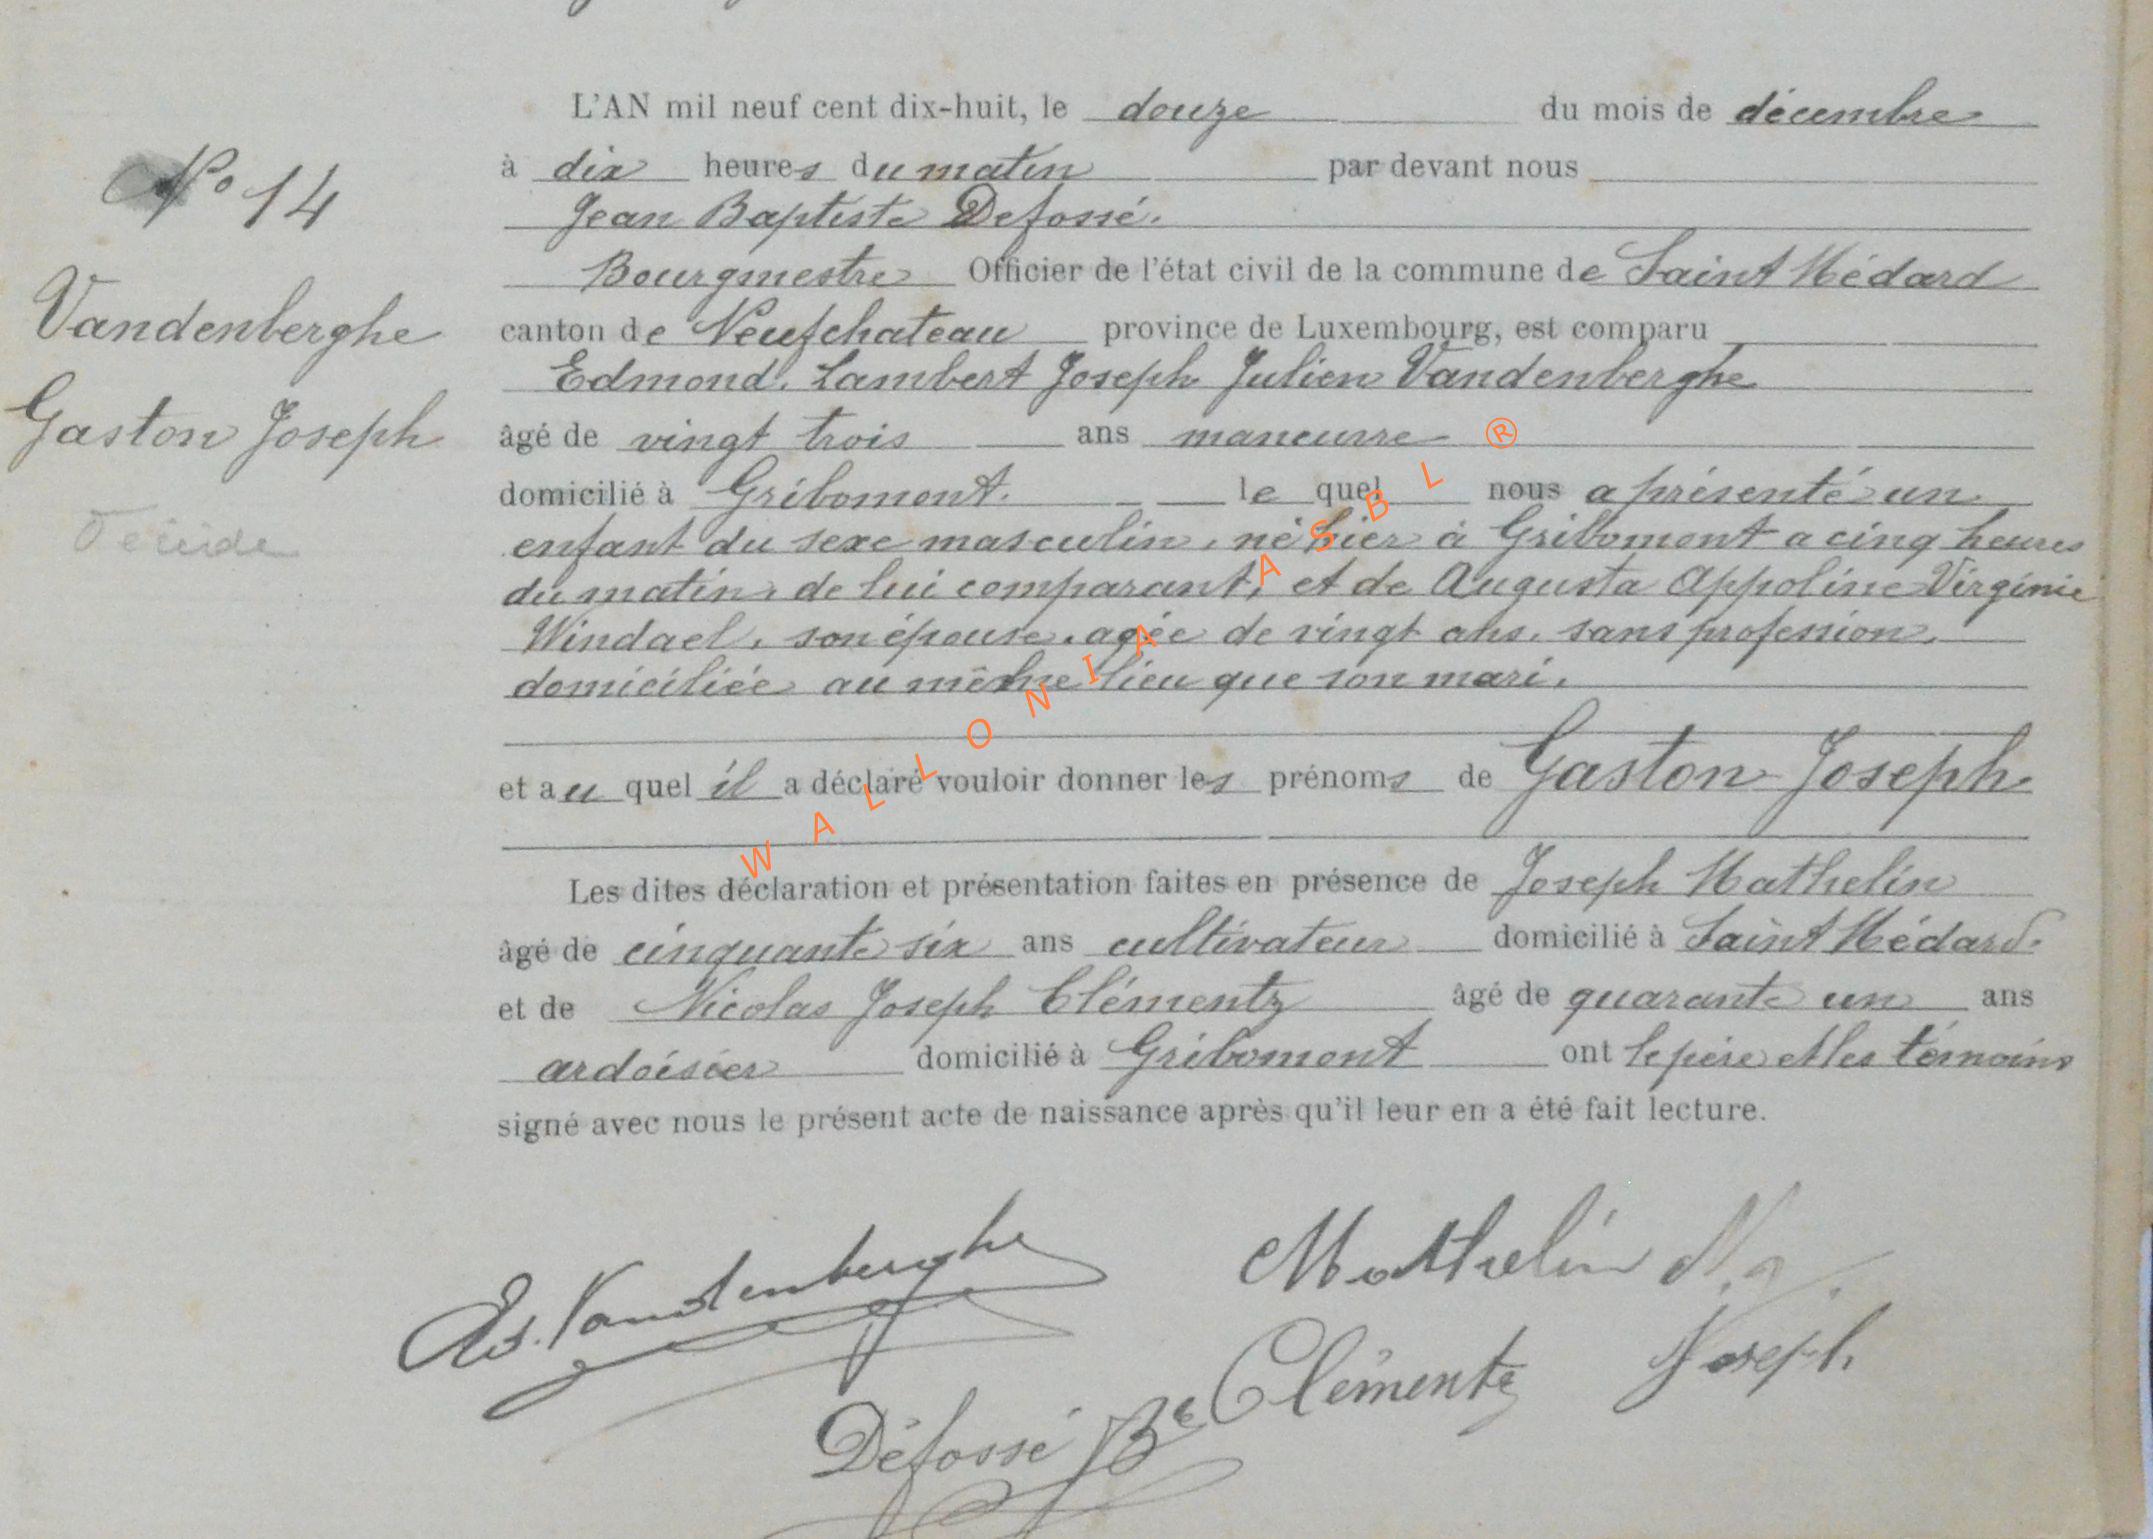 L'AN mil neuf cent dix-huit, le douze du mois de décembre
à dix heures du matin par devant nous
Jean Baptiste Defossé.
Bourgmestre Officier de l'état civil de la commune de Saint Médard
canton de Neufchateau province de Luxembourg, est comparu
Edmond. Lambert Joseph Julien Vandenberghe
âgé de vingt trois ans maneuvre
domicilié à Gribomont. le quel nous a présenté un
enfant du sexe masculin, né hier à Gribomont a cinq heures
du matin, de lui comparant, et de Augusta Appoline Virginie
Windael, son épouse, agée de vingt ans, sans profession,
domiciliée au même lieu que son mari.
et au quel il a déclaré vouloir donner les prénoms de Gaston Joseph
Les dites déclaration et présentation faites en présence de Joseph Mathelin
âgé de cinquante six ans cultivateur domicilié à Saint Médard.
et de Nicolas Joseph Clémentz âgé de quarante un ans
ardoisier domicilié à Gribomont ont le père et les témoins
signé avec nous le présent acte de naissance après qu'il leur en a été fait lecture.
No 14
Vandenberghe
Gaston Joseph
Ed. Vandenberghe
Mathelin
Clémentz Joseph
Défossé Bte
WALLONIA ASBL ®